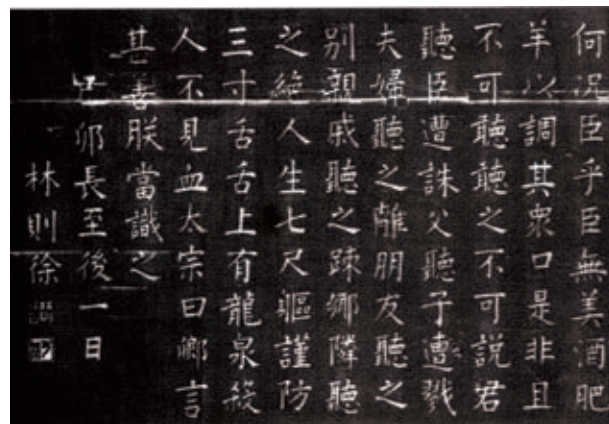 何況臣乎臣無美酒肥
羊以調其衆口是非且
不可聽聽之不可說君
聽臣遭誅父聽子遭戮
夫婦聽之離朋友聽之
別親戚聽之踈鄉隣聽
之絕人生七尺軀謹防
三寸舌舌上有龍泉殺
人不見血太宗曰卿言
甚善朕當識之
己卯長至後一日
林則徐